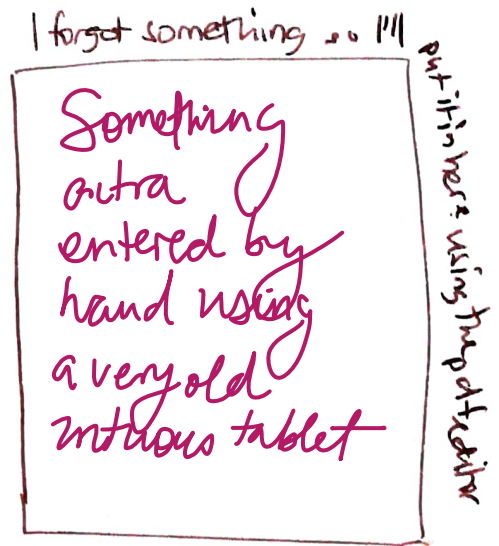 I forgot something ... !!!!
put it in here using the pdf editor
Something
extra
entered by
hand using
a very old
intuous tablet